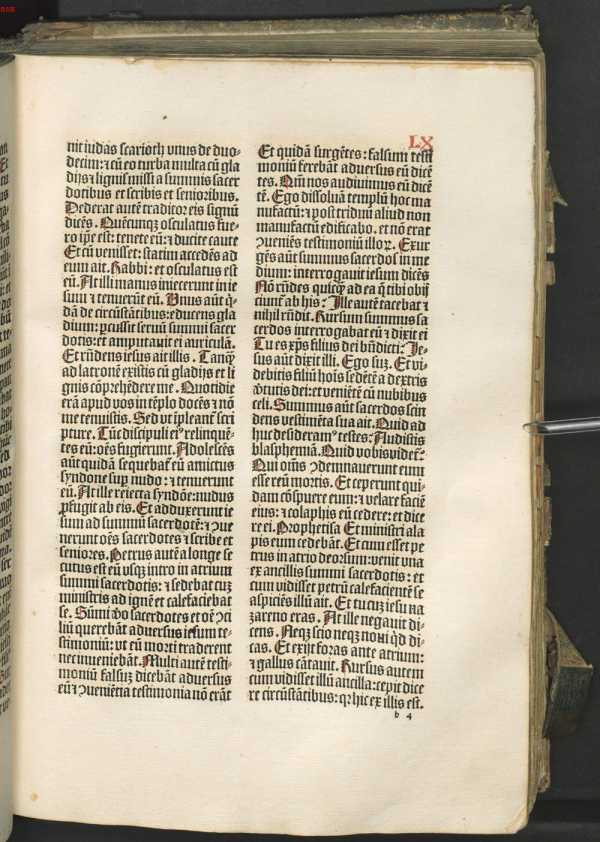 LX
nit iudas scarioth vnus de duo-
decim: ⁊ cū eo turba multa cū gla
dijs ⁊ lignis missi a summis sacer
dotibus et scribis et senioribus.
Dederat autē traditor eis signū
dicēs. Quēcunqꝫ osculatus fue-
ro ip̄e est: tenete eū: ⁊ ducite caute
Et cū venisset: statim accedēs ad
eum ait. Rabbi: et osculatus est
eū. At illi manus iniecerunt in ie
sum ⁊ tenuerūt eū. Unus aūt q̇-
dā de circūstātibus: educens gla
dium: ꝑcussit seruū summi sacer
dotis: et amputauit ei auriculā.
Et rn̄dens iesus ait illis. Tanqꝫ
ad latronē existis cū gladijs et li
gnis cōp̄rehēdere me. Quotidie
erā apud vos in tēplo docēs ⁊ nō
me tenuistis. Sed vt īpleant̄ scri
pture. Tūc discipuli eiꝰ relinquē-
tes eū: oēs fugierunt. Adolescēs
aūt quidā sequebat̄ eū amictus
syndone suꝑ nudo: ⁊ tenuerunt
eū. At ille reiecta syndōe: nudus
ꝓfugit ab eis. Et adduxerunt ie
sum ad summū sacerdotē: ⁊ ꝯue
nerunt oēs sacerdotes ⁊ scribe et
seniores. Petrus autē a longe se
cutus est eū vsqꝫ intro in atrium
summi sacerdotis: ⁊ sedebat cuꝫ
ministris ad ignē et calefaciebat
se. Sūmi v̄o sacerdotes et oē ꝯci
liū querebāt aduersus iesum te-
stimoniū: vt eū morti traderent
nec inueniebāt. Multi autē testi-
moniū falsuꝫ dicebāt aduersus
eū ⁊ ꝯueniētia testimonia nō erāt
Et quidā surgētes: falsum testi
moniū ferebāt aduersus eū dicē
tes. Qm̄ nos audiuimus eū dicē
tē. Ego dissoluā templū hoc ma
nufactū: ⁊ post triduū aliud non
manufactū edificabo. et nō erat
ꝯueniēs testimoniū illoꝝ. Exur
gēs aūt summus sacerdos in me
dium: interrogauit iesum dicēs
Nō rn̄des quicqꝫ ad ea q̄ tibi obij
ciunt̄ ab his? Ille autē tacebat ⁊
nihil rn̄dit. Rursum summus sa
cerdos interrogabat eū ⁊ dixit ei
Tu es xp̄s filius dei bn̄dicti? Ie-
sus aūt dixit illi. Ego suꝫ. Et vi-
debitis filiū hoīs sedētē a dextris
v̄tutis dei: et veniētē cū nubibus
celi. Summus aūt sacerdos scin
dens vestimēta sua ait. Quid ad
huc desideramꝰ testes? Audistis
blasphemiā. Quid vobis videt̄?
Qui om̄s ꝯdemnauerunt eum
esse reū mortis. Et ceperunt qui-
dam cōspuere eum: ⁊ velare faciē
eius: ⁊ colaphis eū cedere: et dice
re ei. Prophetisa Et ministri ala
pis eum cedebāt. Et cum esset pe
trus in atrio deorsum: venit vna
ex ancillis summi sacerdotis: et
cum vidisset petrū calefacientē se
aspiciēs illū ait. Et tu cuꝫ iesu na
zareno eras. At ille negauit di-
cens. Neqꝫ scio neqꝫ noui qd̄ di-
cas. Et exijt foras ante atrium:
⁊ gallus cātauit. Rursus autem
cum vidisset illū ancilla: cepit dice
re circūstātibus: qꝛ hic ex illis est.
b 4